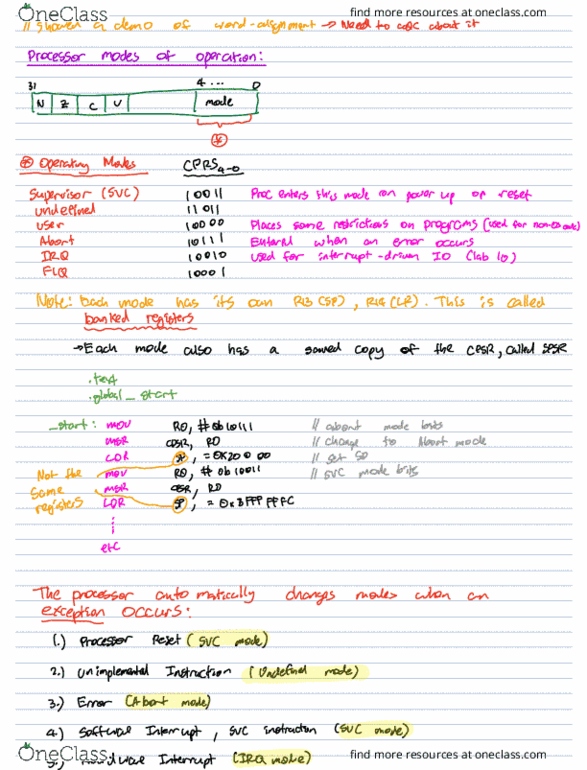 OneClass find more resources at oneclass.com
// showed a demo of word-alignment → Need to care about it
Processor modes of operation:
31 4 ... 0
N Z C V mode
* Operating Modes CPRS4-0
Supervisor (SVC) 10011 Proc enters this mode on power up or reset
undefined 11011
user 10000 Places some restrictions on programs (used for
Abort 10111 Entered when an error occurs
IRQ 10010 used for interrupt-driven IO (lab 10)
FIQ 10001
Note: Each mode has its own R13 (SP), R14 (LR). This is called
banked registers
→ Each mode also has a saved copy of the CPSR, called SPSR
.text
.global _start
_start: mov R0, #0b10111 // abort mode bits
MSR CPSR, R0 // change to Abort mode
LDR SP, =0x20000 // set SP
Not the mov R0, #0b10011 // SVC mode bits
same MSR CPSR, R0
registers LDR SP, =0x3FFFFFFC
⋮
etc
The processor automatically changes modes when an
exception occurs:
1.) Processor Reset (SVC mode)
2.) unimplemented Instruction (Undefined mode)
3.) Error (Abort mode)
4.) Software Interrupt, SVC instruction (SVC mode)
5.) Hardware Interrupt (IRQ mode)
OneClass find more resources at oneclass.com